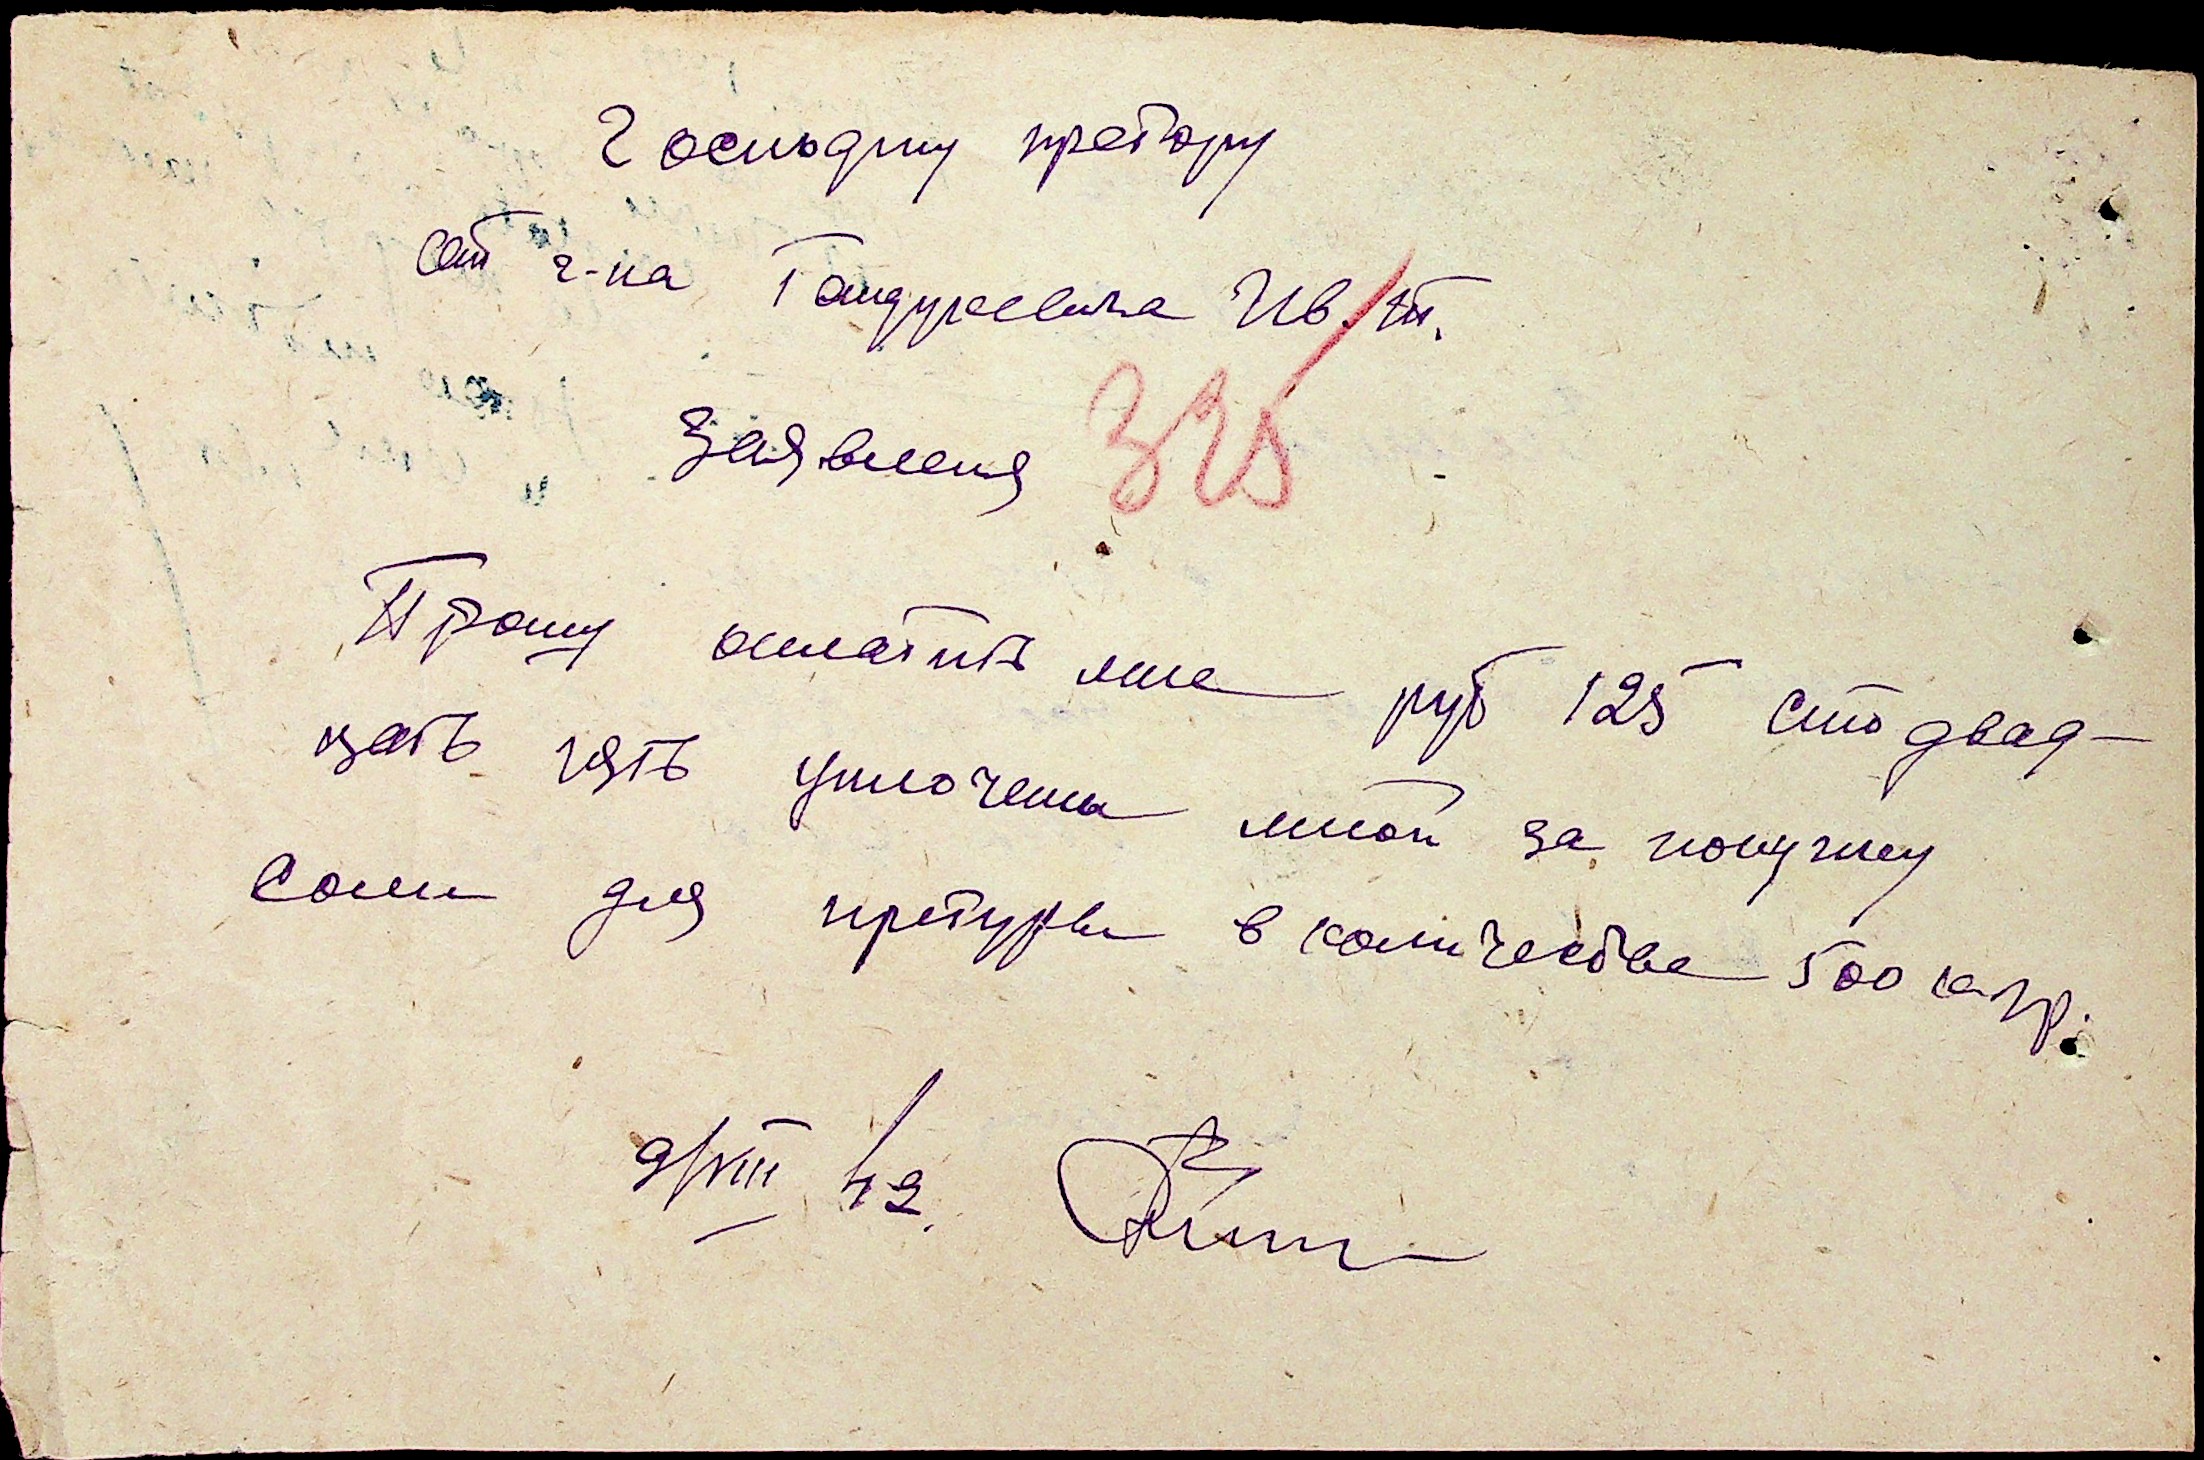 Господину претору
от г-на Гандуревича Ив.
Заявления 325
Прошу оплатить мне руб 125 сто двад-
цать пять уплочены мной за покупку
соли для претуры в количестве 500 к-гр.
9/VIII 42.